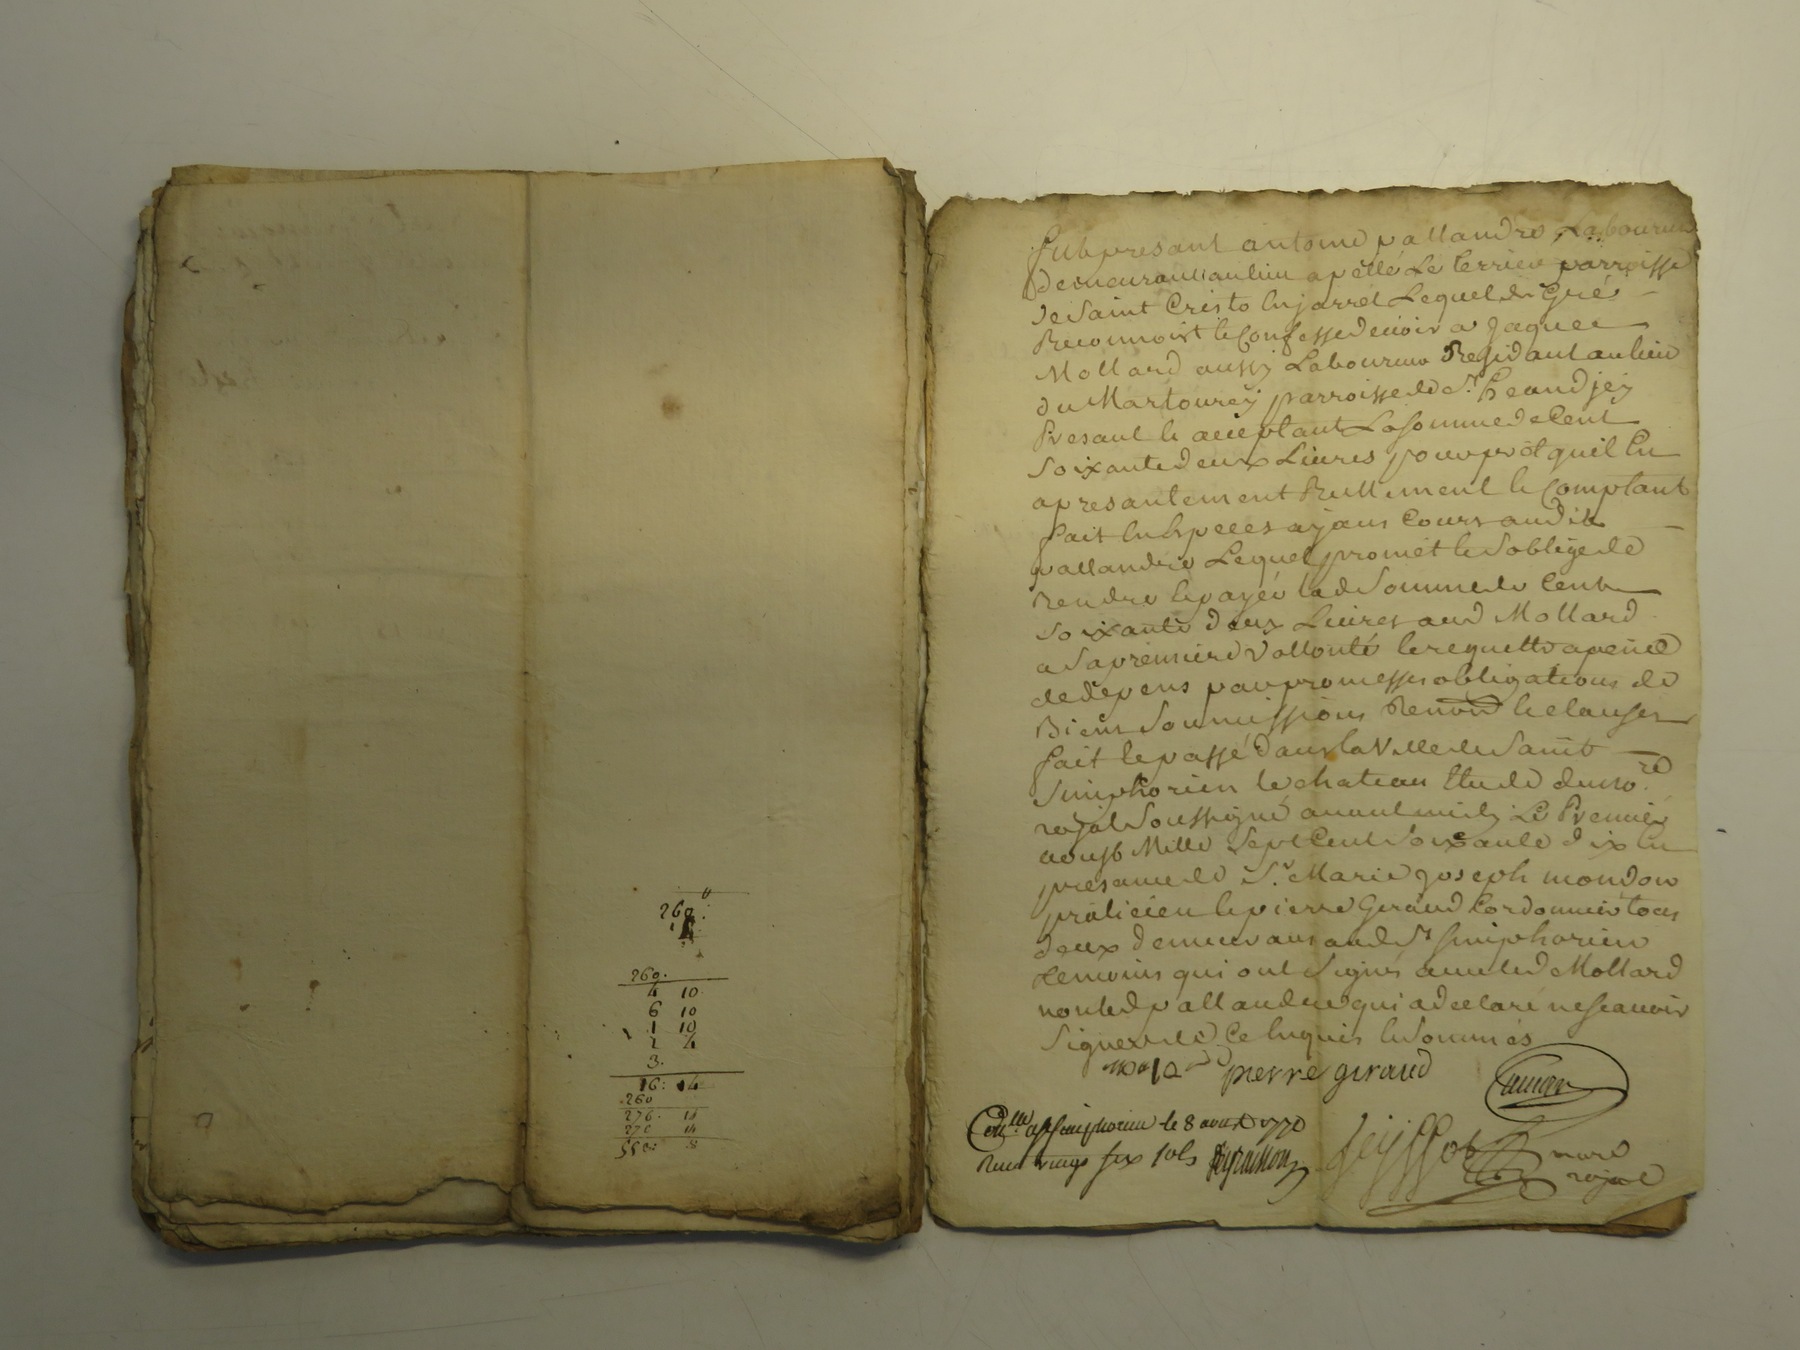 260.
260.
4 10
6 10
1 10
1 4
3.
16: 14
260
276. 14
276 14
553: 8
fut presant antoine pallandre Laboureur
demeurant au lieu apellé Le terrieu parroisse
de Saint Cristo En jarret Lequel de Gré
Reconnoist Et Confesse devoir a Jaques
Mollard aussy Laboureur Residant au lieu
du Martourey parroisse de St heand jcy
Presant Et aceptant La somme de Cent
Soixante deux Livres pour prêt qu'il En
a presantement Reellement Et Comptant
fait En Especes ayans Cours audit
pallandre Lequel promet Et S'oblige de
Rendre Et payer lad Somme de Cent
Soixante deux Livres aud Mollard
a Sa premiere Vollonté Et requette a peine
de depens par promesses obligations de
Biens Soumissions Renon Et clauses
fait Et passé Dans la Ville de Saint
Simphorien Le chateau Etude du no.re
royal Soussigné avant midy Le Premier
aoust Mille Sept Cent Soixante dix En
presance de Sr. Marie Joseph mondon
praticien Et pierre Giraud Cordonnier tous
deux demeurans aud St Simphorien
temoins qui ont Signés avec led Mollard
non led pallandre qui a declaré ne scavoir
Signer de Ce Enquis Et Sommés
pierre giraud
Con.lle a St Simphorien le 8 aoust 1770
Recu vingt six sols
nore
royal